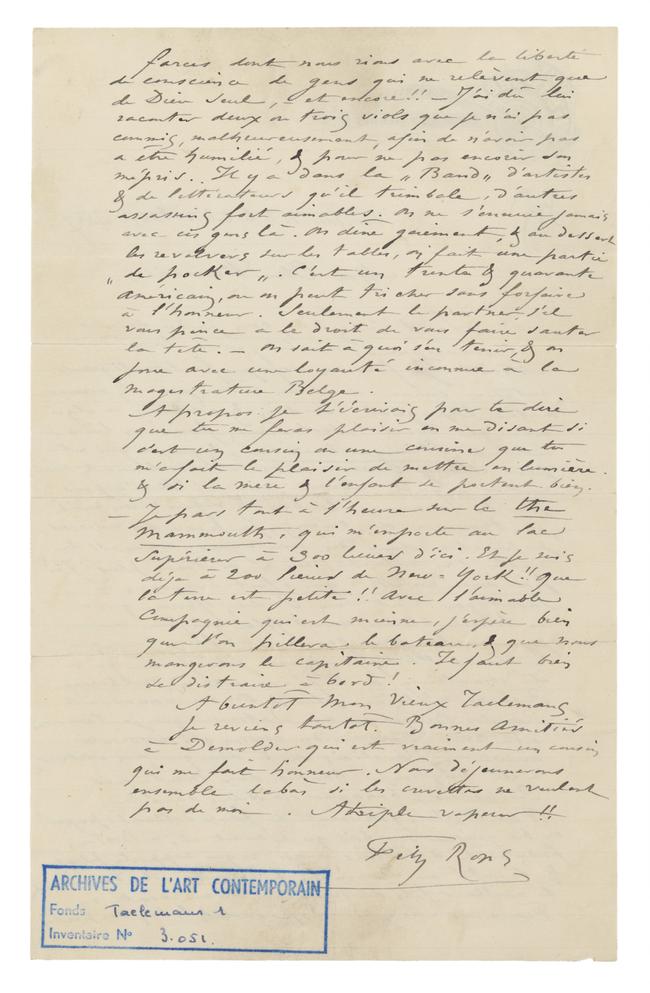 farces dont nous rions avec la liberté
de conscience de gens qui ne relèvent que
de Dieu seul, – et encore!! – J'ai dû lui
raconter deux ou trois viols que je n'ai pas
commis, malheureusement, afin de n'avoir pas
à être humilié, & pour ne pas encourir son
mépris. Il y a dans la „Band„ d'artistes
& de littérateurs qu'il trimbale, d'autres
assassins fort aimables. On ne s'ennuie jamais
avec ces gens là. On dîne gaiement, & au dessert
les revolvers sur les tables, on fait une partie
„de pocker„. C'est un trente & quarante
américain, où on peut tricher sans forfaire
à l'honneur. Seulement le partner, s'il
vous pince a le droit de vous faire sauter
la tête. – On sait à quoi s'en tenir, & on
joue avec une loyauté inconnue à la
magistrature Belge.
A propos je t'écrivais pour te dire
que tu me feras plaisir en me disant si
c'est un cousin ou une cousine que tu
m'as fait le plaisir de mettre en lumière.
& si la mère & l'enfant se portent bien.
– Je pars tout à l'heure sur le the
Mammouth, qui m'emporte au lac
Supérieur à 300 lieues d'ici. Et je suis
déjà à 200 lieues de New-York!! Que
la terre est petite!! Avec l'aimable
Compagnie qui est mienne, j'espère bien
que l'on pillera le bateau, & que nous
mangerons le capitaine. Il faut bien
se distraire à bord!
A bientôt Mon Vieux Taelemans
Je reviens tantôt. Bonnes Amitiés
à Demolder qui est vraiment un cousin
qui me fait honneur. Nous déjeunerons
ensemble labas si les crevettes ne veulent
pas de moi. A triple vapeur!!
Fély Rops
ARCHIVES DE L'ART CONTEMPORAIN
Fonds Taelemans 1
Inventaire Nº 3.051.